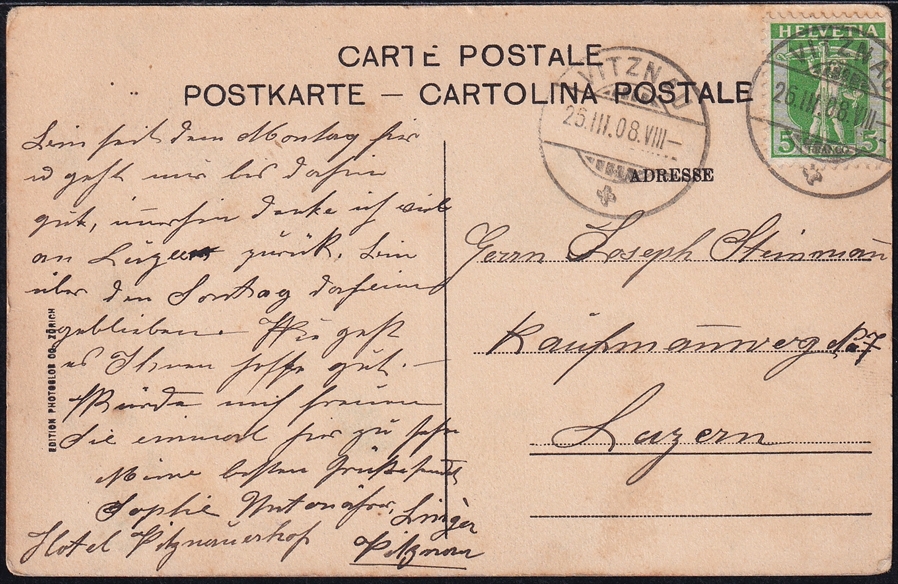 CARTE POSTALE
POSTKARTE — CARTOLINA POSTALE
ADRESSE
HELVETIA
5 5
VITZNAU
26.III.08.VIII—
VITZNAU
26.III.08.VIII—
Bin seit dem Montag hier
u geht mir bis dahin
gut, immerhin denke ich viel
an Luzern zurück. Bin
über den Sontag daheim
geblieben. Wie geht
es Ihnen hoffe gut. —
Würde mich freuen
Sie einmal hier zu sehn
Meine besten Grüße sendet
Sophie
Hotel Vitznauerhof
Vitznau
Herrn Joseph Steinmann
Kaufmannweg No 7
Luzern
EDITION PHOTOGLOB CO. ZÜRICH